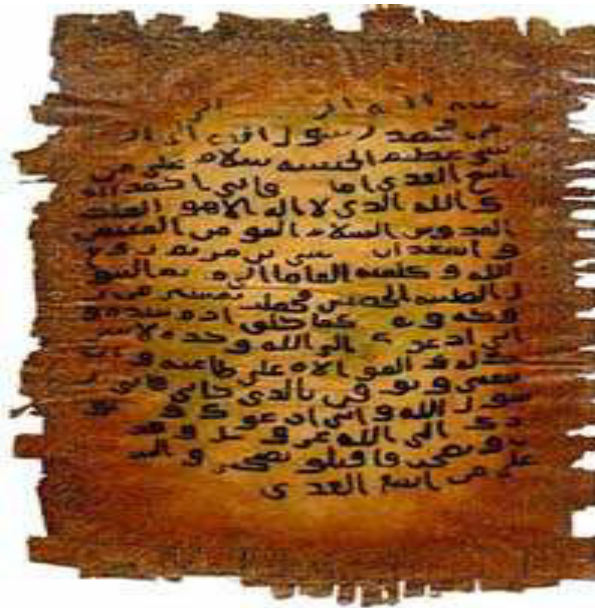 بسم الله الر الر
من محمد رسول الله الى ال
نجسي عظيم الحبشة سلام على من
اتبع الهدى اما فاني احمد
الله الذي لا اله الا هو الملك
القدوس السلام المومن المهيمن
و اشهد ان عيسى بن مريم روح
الله و كلمته القاها الى مريم البتو
ل الطيبة الحصينة فحملت بعيسى من ر
وحه و كما خلق ادم بيده و
اني ادعوك الى الله وحده لا شر
يك له و الموالاة على طاعته و ان
تتبعني و توقن بالذي جاني فاني ر
سول الله و اني ادعوك و جنو
دك الى الله عز و جل و قد
و نصحت فاقبلو و السلا
على من اتبع الهدى